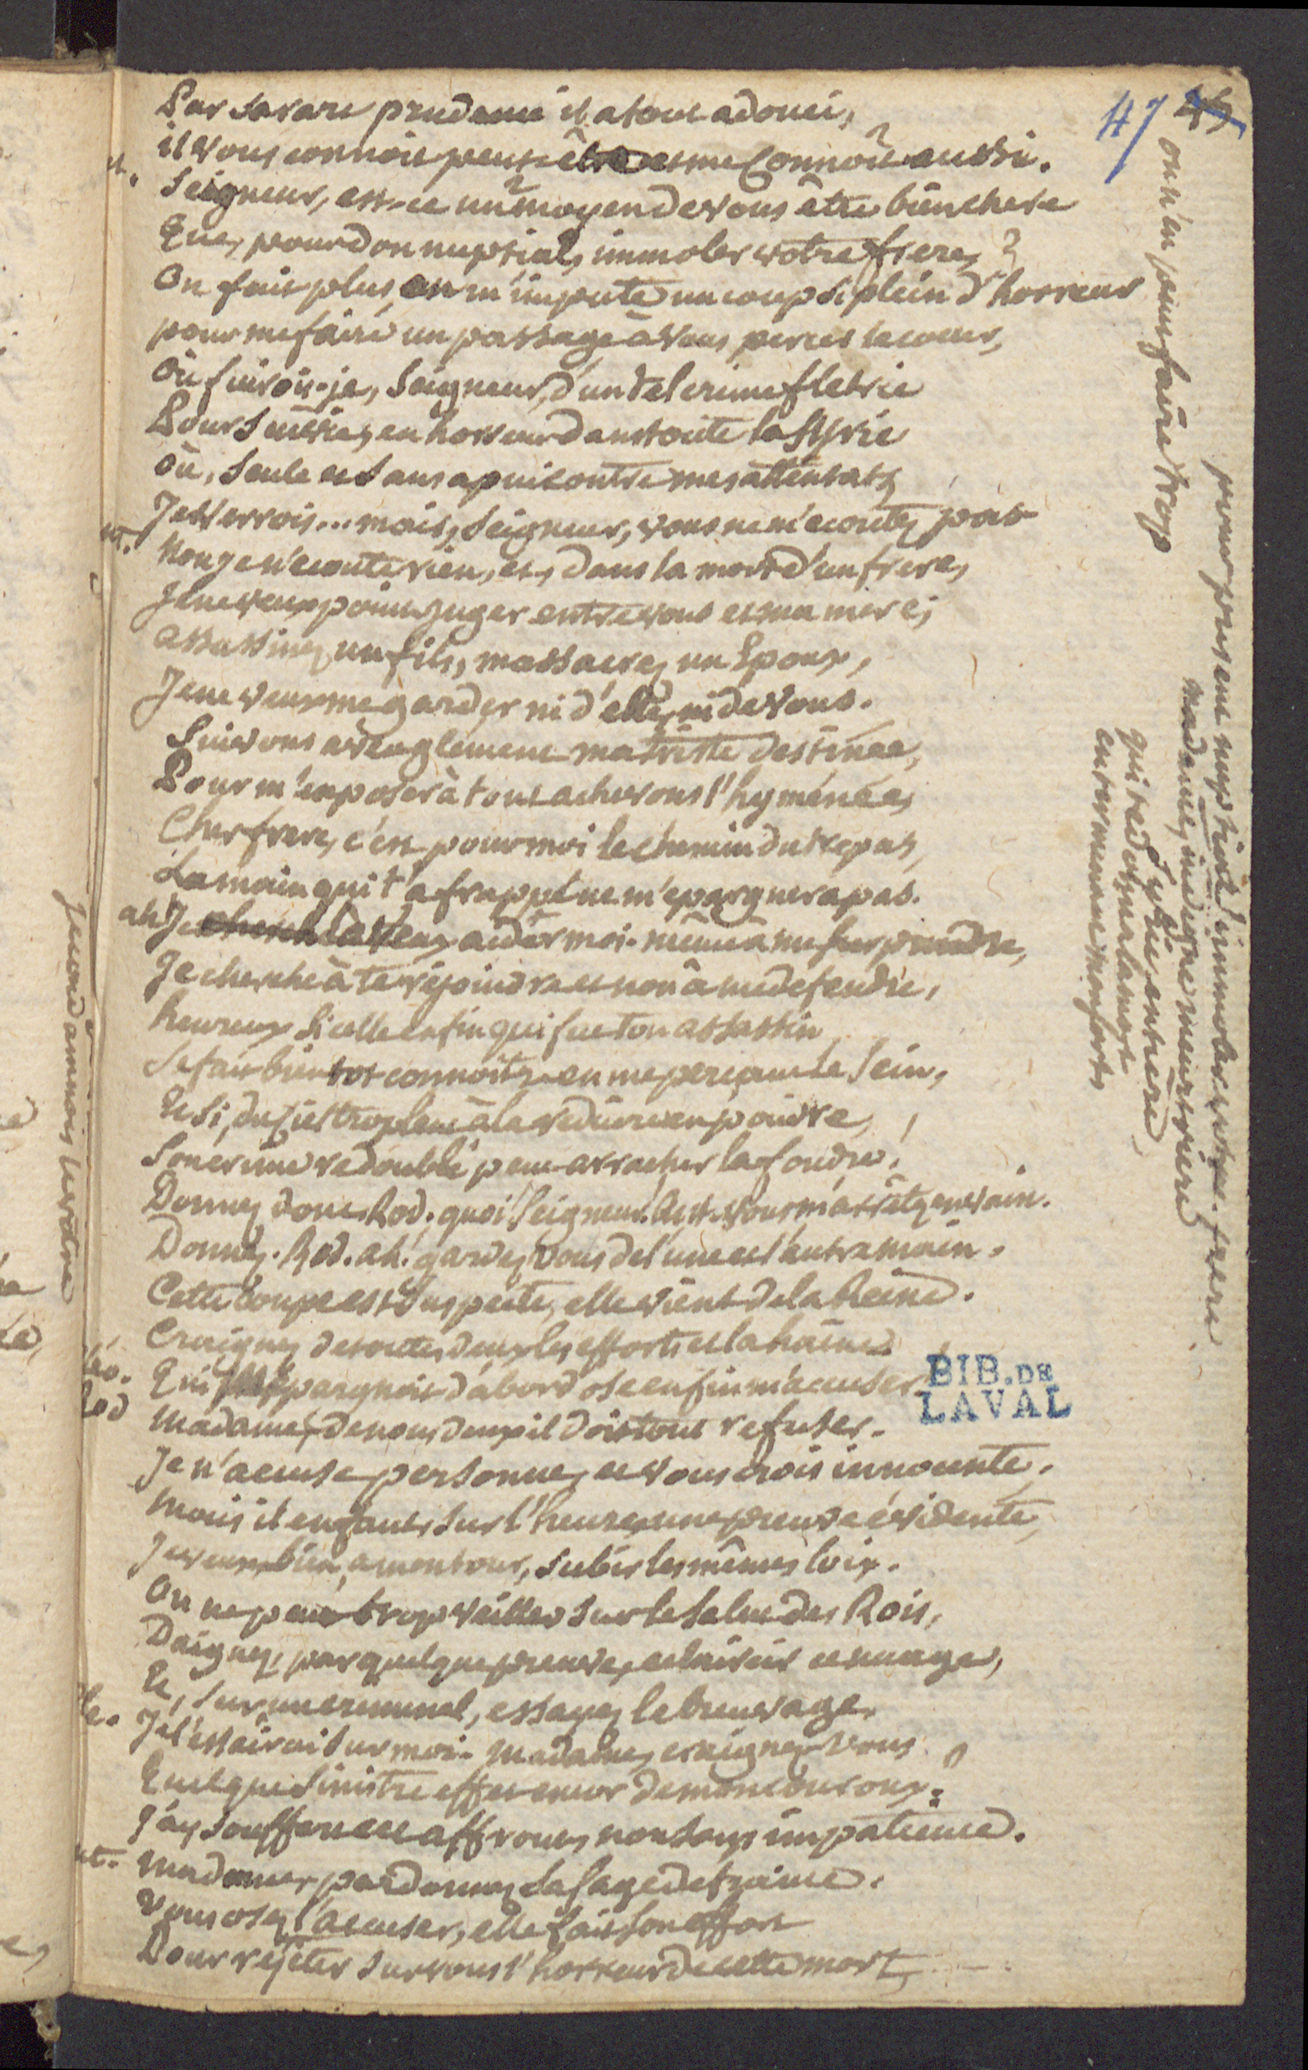 47 45
Par sa rare prudence il a tout adouci,
il vous connoit peut-être et me connoit aussi.
nt. Seigneur, est-ce un moyen de vous être bien chere
Que, pour don nuptial, immoler votre frere?
On fait plus, on m'impute un coup si plein d'horreur
pour me faire un passage à vous percer le coeur,
Où fuirois-je, Seigneur, d'un tel crime fletrie
Poursuivie, en horreur dans toute la Syrie
où, seule et sans apui contre mes attentats
Je verrois... mais, Seigneur, vous ne m'ecoutez pas
nt. Non je n'ecoute rien, et, dans la mort d'un frere,
Je ne veux point juger entre vous et ma mere;
assassinez un fils, massacrez un Epoux,
Je ne veux me garder ni d'elle, ni de vous.
Suivons aveuglement ma triste destinée,
Pour m'exposer à tout achevons l'hyménée,
Cher frere, c'est pour moi le chemin du trepas,
La main qui t'a frappé ne m'epargnera pas.
ah! Je
aider moi-même à me surprendre,
Je cherche à te rejoindre et non à me defendre,
heureux si celle enfin qui fut ton assassin
Se fait bientot connoitre en me perçant le sein,
Et si, du Ciel trop lent à la reduire en poudre,
Son crime redoublé peut arracher la foudre!
Donnez donc. Rod. quoi Seigneur! Ant. vous m'arrêtez en vain.
Donnez. Rod. ah! gardez vous de l'une et l'autre main.
Cette coupe est suspecte, elle vient de la Reine.
Craignez de toutes deux les efforts et la haine.
éo. Qui m'epargnoit d'abord ose enfin m'accuser!
Rod Madame, de nous deux il doit tout refuser.
Je n'accuse personne, et vous crois innocente,
Mais il en faut, sur l'heure, une preuve évidente,
Je veux bien, a mon tour, subir les mêmes loix.
On ne peut trop veiller sur le salut des Rois,
Daignez, par quelque preuve, eclaircir ce nuage,
Et, sur un criminel, essayez le breuvage.
le. Je l'essairai sur moi. Madame, craignez vous
Quelque sinistre effet encor de mon couroux?
J'ay souffert cet affront, non sans impatience.
nt. Madame, pardonnez sa sage defiance.
Vous osez l'accuser, elle fait son effort
Pour rejeter sur vous l'horreur de cette mort,
on n'en peut faire trop
pour present nuptial immoler votre frere
madame, indigne meurtriere
qui te
en terminant mon sort,
BIB. DE
LAVAL